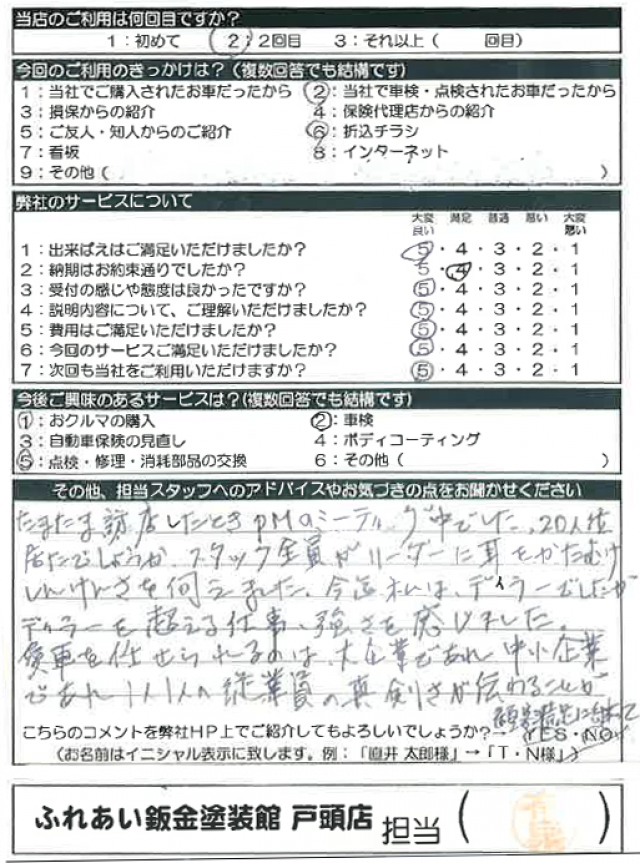 当店のご利用は何回目ですか?
1:初めて 2:2回目 3:それ以上( 回目)
今回のご利用のきっかけは?(複数回答でも結構です)
1:当社でご購入されたお車だったから 2:当社で車検・点検されたお車だったから
3:損保からの紹介 4:保険代理店からの紹介
5:ご友人・知人からのご紹介 6:折込チラシ
7:看板 8:インターネット
9:その他( )
弊社のサービスについて
大変良い 満足 普通 悪い 大変悪い
1:出来ばえはご満足いただけましたか? 5・4・3・2・1
2:納期はお約束通りでしたか? 5・4・3・2・1
3:受付の感じや態度は良かったですか? 5・4・3・2・1
4:説明内容について、ご理解いただけましたか? 5・4・3・2・1
5:費用はご満足いただけましたか? 5・4・3・2・1
6:今回のサービスご満足いただけましたか? 5・4・3・2・1
7:次回も当社をご利用いただけますか? 5・4・3・2・1
今後ご興味のあるサービスは?(複数回答でも結構です)
1:おクルマの購入 2:車検
3:自動車保険の見直し 4:ボディコーティング
5:点検・修理・消耗部品の交換 6:その他( )
その他、担当スタッフへのアドバイスやお気づきの点をお聞かせください
たまたま訪店したときPMのミーティング中でした、20人位
居たでしょうか、スタッフ全員がリーダーに耳をかたむけ
しんけんさを伺えました。今迄私は、ディラーでしたが
ディラーを超える仕事、強さを感じました。
愛車を任せられるのは、大企業であれ中小企業
であれ1人1人の従業員の真剣さが伝わることが
顧客満足に
こちらのコメントを弊社HP上でご紹介してもよろしいでしょうか?→ YES・NO
(お名前はイニシャル表示に致します。例:「直井 太郎様」→「T・N様」)
ふれあい鈑金塗装館 戸頭店 担当( )